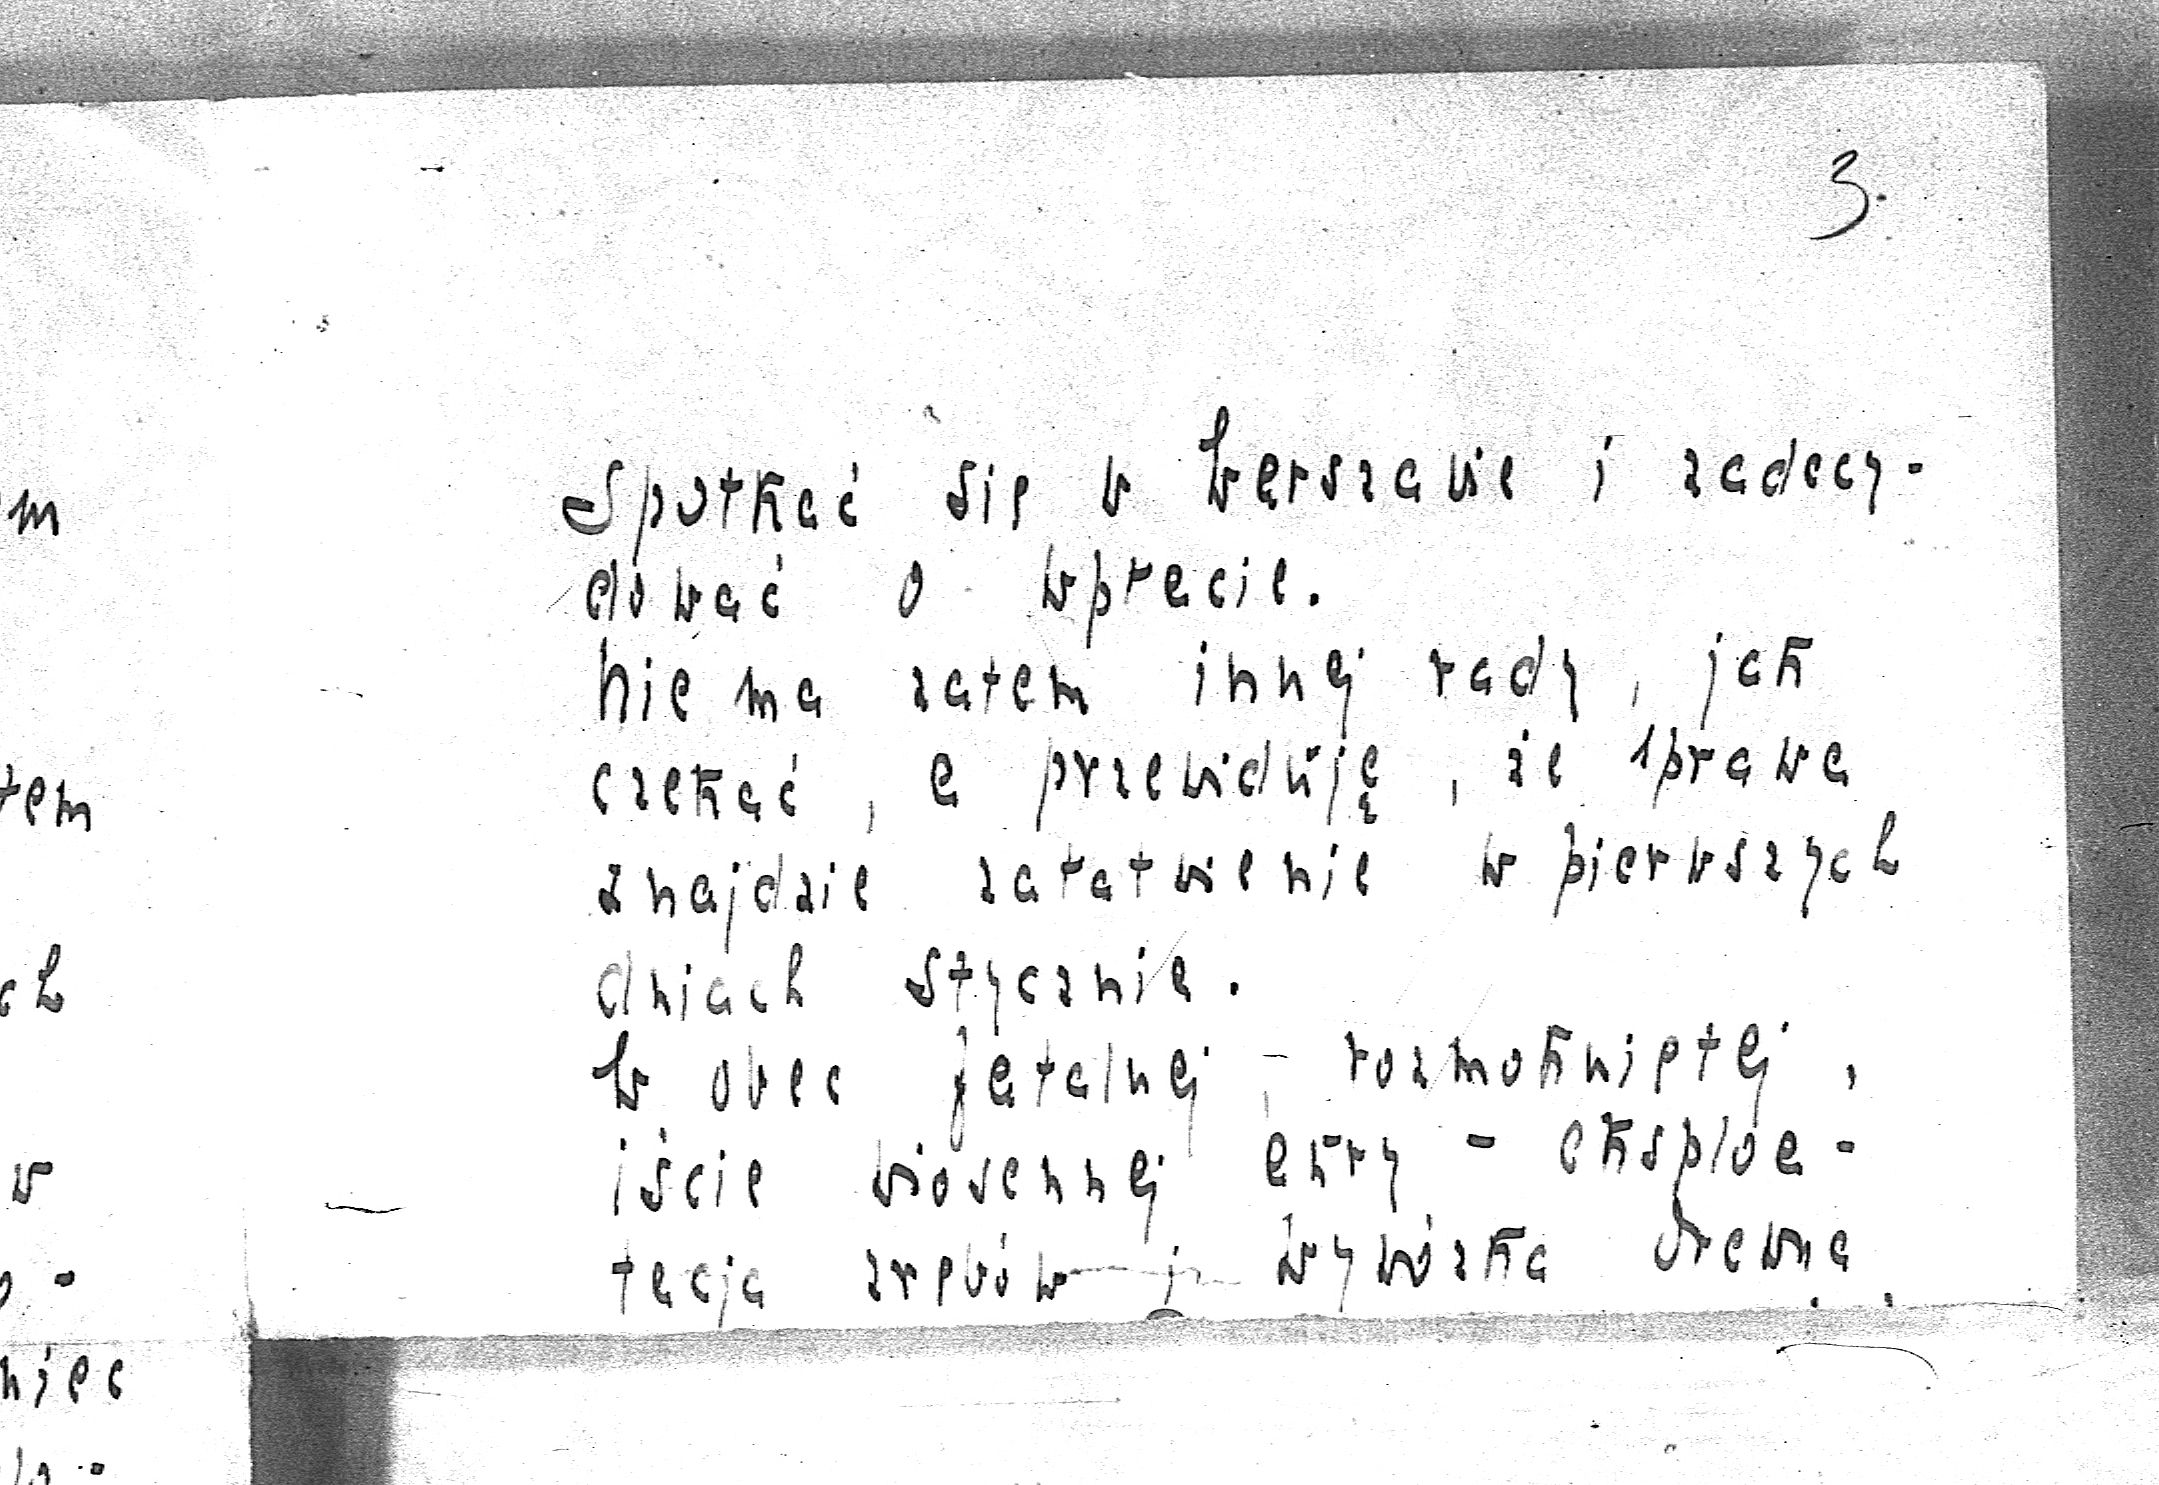 3.
spotkać się w Warszawie i zadecy-
dować o wpłacie.
Nie ma zatem innej rady, jak
czekać, a przewiduję, że sprawa
znajdzie załatwienie w pierwszych
dniach stycznia.
Wobec fatalnej - rozmokniętej,
iście wiosennej aury - eksploa-
tacja zrębów i wywózka drewna
m
tem
ch
w
o-
niec